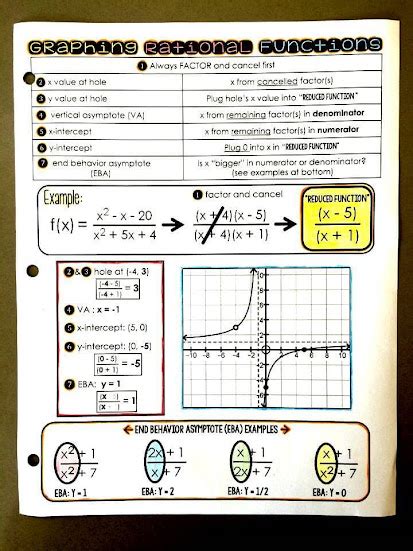 Graphing Rational Functions
1 Always FACTOR and cancel first
2 x value at hole x from cancelled factor(s)
3 y value at hole Plug hole's x value into "REDUCED FUNCTION"
4 vertical asymptote (VA) x from remaining factor(s) in denominator
5 x-intercept x from remaining factor(s) in numerator
6 y-intercept Plug 0 into x in "REDUCED FUNCTION"
7 end behavior asymptote (EBA) Is x "bigger" in numerator or denominator? (see examples at bottom)
Example:
1 factor and cancel
"REDUCED FUNCTION"
f(x) = x² - x - 20 / x² + 5x + 4 → (x + 4)(x - 5) / (x + 4)(x + 1) → (x - 5) / (x + 1)
2 & 3 hole at (-4, 3)
(-4 - 5) / (-4 + 1) = 3
4 VA : x = -1
5 x-intercept: (5, 0)
6 y-intercept: (0, -5)
(0 - 5) / (0 + 1) = -5
7 EBA: y = 1
(x / (x = 1
-10 -8 -6 -4 -2 2 4 6 8 10
← END BEHAVIOR ASYMPTOTE (EBA) EXAMPLES →
x² + 1 / x² + 7
2x + 1 / x + 7
x + 1 / 2x + 7
x + 1 / x² + 7
EBA: Y = 1 EBA: Y = 2 EBA: Y = 1/2 EBA: Y = 0